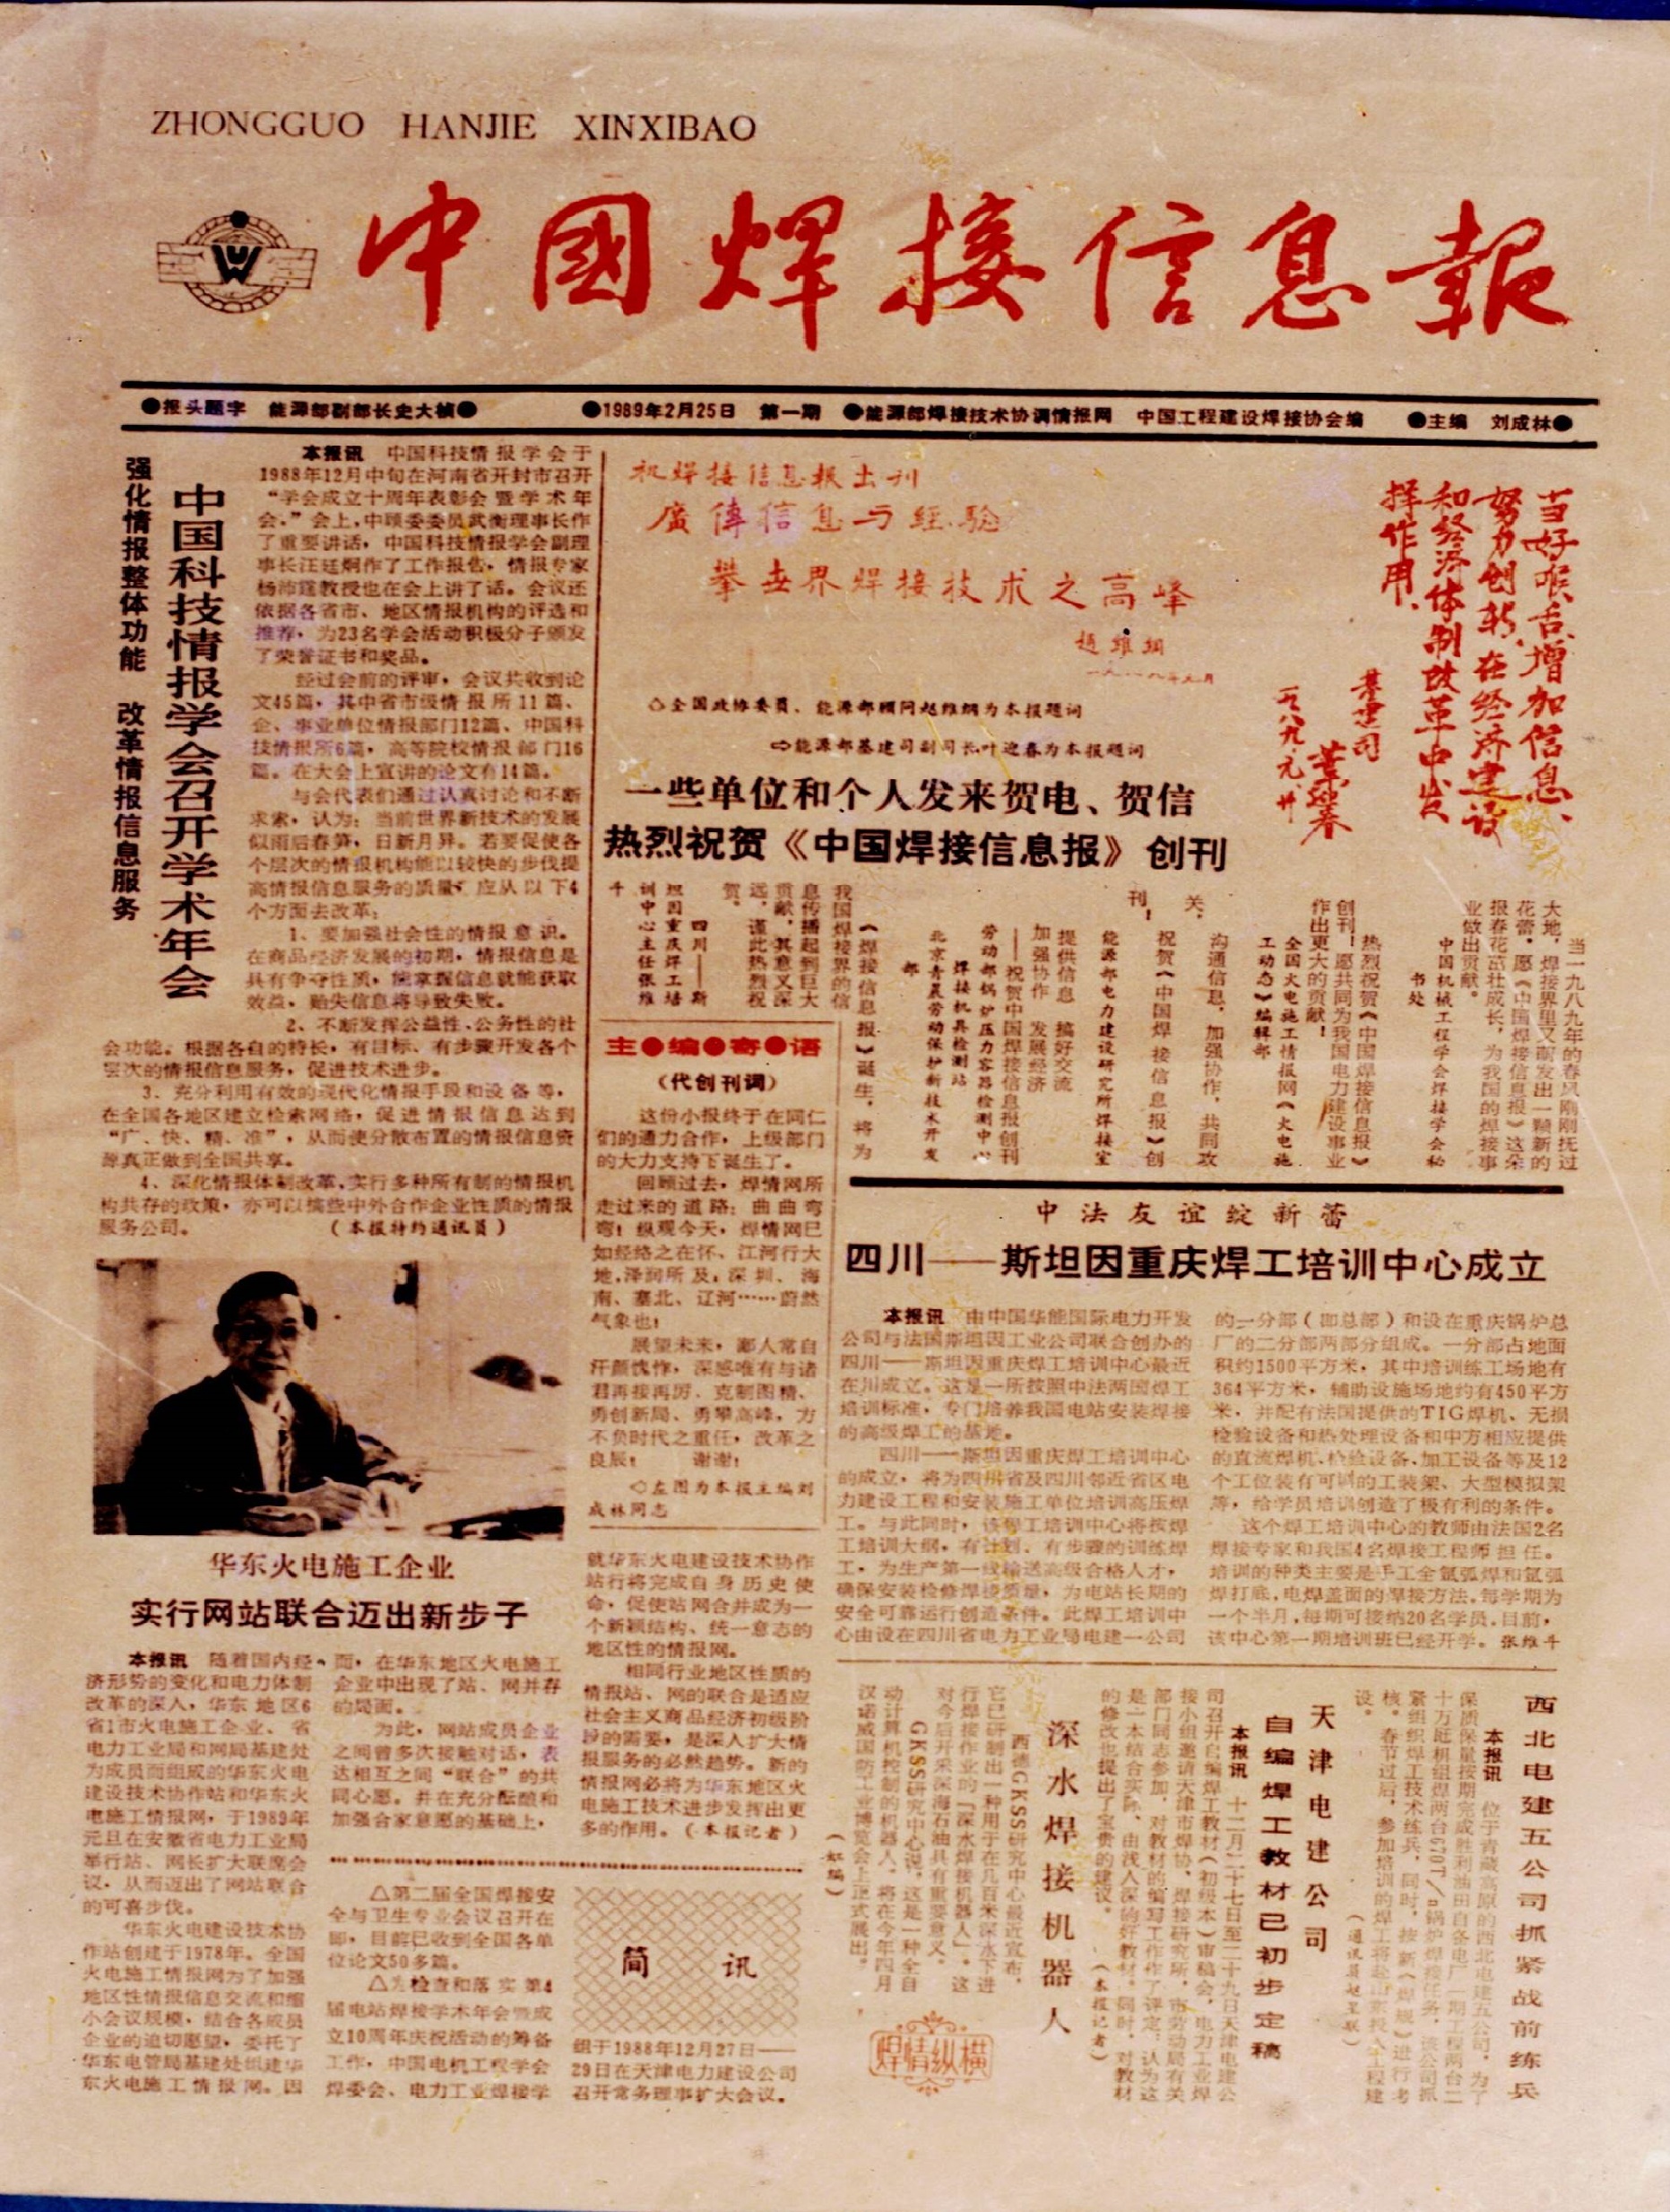 ZHONGGUO HANJIE XINXIBAO
中國焊接信息報
●报头题字 能源部副部长史大桢●
●1989年2月25日 第一期 ●能源部焊接技术协调情报网 中国工程建设焊接协会编 ●主编 刘成林●
强化情报整体功能 改革情报信息服务
中国科技情报学会召开学术年会
本报讯 中国科技情报学会于
1988年12月中旬在河南省开封市召开
“学会成立十周年表彰会暨学术年
会。”会上,中顾委委员武衡理事长作
了重要讲话,中国科技情报学会副理
事长汪廷炯作了工作报告,情报专家
杨沛霆教授也在会上讲了话。会议还
依据各省市、地区情报机构的评选和
推荐,为23名学会活动积极分子颁发
了荣誉证书和奖品。
经过会前的评审,会议共收到论
文45篇,其中省市级情报所11篇、
企、事业单位情报部门12篇、中国科
技情报所6篇,高等院校情报部门16
篇。在大会上宣讲的论文有14篇。
与会代表们通过认真讨论和不断
求索,认为:当前世界新技术的发展
似雨后春笋,日新月异。若要促使各
个层次的情报机构能以较快的步伐提
高情报信息服务的质量,应从以下4
个方面去改革:
1、要加强社会性的情报意识。
在商品经济发展的初期,情报信息是
具有争夺性质,能掌握信息就能获取
效益,贻失信息将导致失败。
2、不断发挥公益性、公务性的社
会功能。根据各自的特长,有目标、有步骤开发各个
层次的情报信息服务,促进技术进步。
3、充分利用有效的现代化情报手段和设备等,
在全国各地区建立检索网络,促进情报信息达到
“广、快、精、准”,从而使分散布置的情报信息资
源真正做到全国共享。
4、深化情报体制改革,实行多种所有制的情报机
构共存的政策,亦可以搞些中外合作企业性质的情报
服务公司。 (本报特约通讯员)
祝焊接信息报出刊
廣傳信息与经验
攀世界焊接技术之高峰
趙維綱
一九八九年元月
◇全国政协委员、能源部顾问赵维纲为本报题词
⇨能源部基建司副司长叶迎春为本报题词
当好喉舌,增加信息、
努力创新,在经济建设
和经济体制改革中发
择作用。
基建司
叶迎春
一九八九、元、廿
一些单位和个人发来贺电、贺信
热烈祝贺《中国焊接信息报》创刊
当一九八九年的春风刚刚抚过
大地,焊接界里又萌发出一颗新的
花蕾,愿《中国焊接信息报》这朵
报春花茁壮成长,为我国的焊接事
业做出贡献。
中国机械工程学会焊接学会秘
书处
热烈祝贺《中国焊接信息报》
创刊!愿共同为我国电力建设事业
作出更大的贡献!
全国火电施工情报网《火电施
工动态》编辑部
沟通信息,加强协作,共同攻
关,
祝贺《中国焊接信息报》创
刊!
能源部电力建设研究所焊接室
提供信息 搞好交流
加强协作 发展经济
——祝贺中国焊接信息报创刊
劳动部锅炉压力容器检测中心
焊接机具检测站
北京青晨劳动保护新技术开发
部
《焊接信息报》诞生,将为
我国焊接界的信
息传播起到巨大
贡献,其意义深
远,谨此热烈祝
贺。
四川——斯
坦因重庆焊工培
训中心主任张维
千
主●编●寄●语
(代创刊词)
这份小报终于在同仁
们的通力合作,上级部门
的大力支持下诞生了。
回顾过去,焊情网所
走过来的道路:曲曲弯
弯!纵观今天,焊情网已
如经络之在怀、江河行大
地,泽润所及:深圳、海
南、塞北、辽河……蔚然
气象也!
展望未来,鄙人常自
汗颜愧怍,深感唯有与诸
君再接再厉、克制图精、
勇创新局、勇攀高峰,方
不负时代之重任,改革之
良辰! 谢谢!
◇左图为本报主编刘
成林同志
中法友谊绽新蕾
四川——斯坦因重庆焊工培训中心成立
本报讯 由中国华能国际电力开发
公司与法国斯坦因工业公司联合创办的
四川——斯坦因重庆焊工培训中心最近
在川成立。这是一所按照中法两国焊工
培训标准,专门培养我国电站安装焊接
的高级焊工的基地。
四川——斯坦因重庆焊工培训中心
的成立,将为四川省及四川邻近省区电
力建设工程和安装施工单位培训高压焊
工。与此同时,该焊工培训中心将按焊
工培训大纲,有计划、有步骤的训练焊
工,为生产第一线输送高级合格人才,
确保安装检修焊接质量,为电站长期的
安全可靠运行创造条件。此焊工培训中
心由设在四川省电力工业局电建一公司
的一分部(即总部)和设在重庆锅炉总
厂的二分部两部分组成。一分部占地面
积约1500平方米,其中培训练工场地有
364平方米,辅助设施场地约有450平方
米,并配有法国提供的TIG焊机、无损
检验设备和热处理设备和中方相应提供
的直流焊机、检验设备、加工设备等及12
个工位装有可调的工装架、大型模拟架
等,给学员培训创造了极有利的条件。
这个焊工培训中心的教师由法国2名
焊接专家和我国4名焊接工程师担任。
培训的种类主要是手工全氩弧焊和氩弧
焊打底,电焊盖面的焊接方法。每学期为
一个半月,每期可接纳20名学员。目前,
该中心第一期培训班已经开学。张维千
华东火电施工企业
实行网站联合迈出新步子
本报讯 随着国内经
济形势的变化和电力体制
改革的深入,华东地区6
省1市火电施工企业、省
电力工业局和网局基建处
为成员而组成的华东火电
建设技术协作站和华东火
电施工情报网,于1989年
元旦在安徽省电力工业局
举行站、网长扩大联席会
议,从而迈出了网站联合
的可喜步伐。
华东火电建设技术协
作站创建于1978年。全国
火电施工情报网为了加强
地区性情报信息交流和缩
小会议规模,结合各成员
企业的迫切愿望,委托了
华东电管局基建处组建华
东火电施工情报网。因
而,在华东地区火电施工
企业中出现了站、网并存
的局面。
为此,网站成员企业
之间曾多次接触对话,表
达相互之间“联合”的共
同心愿。并在充分酝酿和
加强合家意愿的基础上,
就华东火电建设技术协作
站行将完成自身历史使
命,促使站网合并成为一
个新颖结构、统一意志的
地区性的情报网。
相同行业地区性质的
情报站、网的联合是适应
社会主义商品经济初级阶
段的需要,是深入扩大情
报服务的必然趋势。新的
情报网必将为华东地区火
电施工技术进步发挥出更
多的作用。(本报记者)
简讯
△第二届全国焊接安
全与卫生专业会议召开在
即,目前已收到全国各单
位论文50多篇。
△为检查和落实第4
届电站焊接学术年会暨成
立10周年庆祝活动的筹备
工作,中国电机工程学会
焊委会、电力工业焊接学
组于1988年12月27日——
29日在天津电力建设公司
召开常务理事扩大会议。
西北电建五公司抓紧战前练兵
本报讯 位于青藏高原的西北电建五公司,为了
保质保量按期完成胜利油田自备电厂一期工程两台二
十万瓩机组焊两台670T/h锅炉焊接任务,该公司抓
紧组织焊工技术练兵,同时,按新《焊规》进行考
核。春节过后,参加培训的焊工将赴山东投入工程建
设。 (通讯员赵至联)
天津电建公司
自编焊工教材已初步定稿
本报讯 十二月二十七日至二十九日天津电建公
司召开自编焊工教材(初级本)审稿会,电力工业焊
接小组邀请天津市焊协、焊接研究所、市劳动局有关
部门同志参加,对教材的编写工作作了评定:认为这
是一本结合实际、由浅入深的好教材。同时,对教材
的修改也提出了宝贵的建议。 (本报记者)
深水焊接机器人
西德GKSS研究中心最近宣布,
它已研制出一种用于在几百米深水下进
行焊接作业的「深水焊接机器人」。这
对今后开采深海石油具有重要意义。
GKSS研究中心说,这是一种全自
动计算机控制的机器人,将在今年四月
汉诺威国防工业博览会上正式展出。
焊情纵横